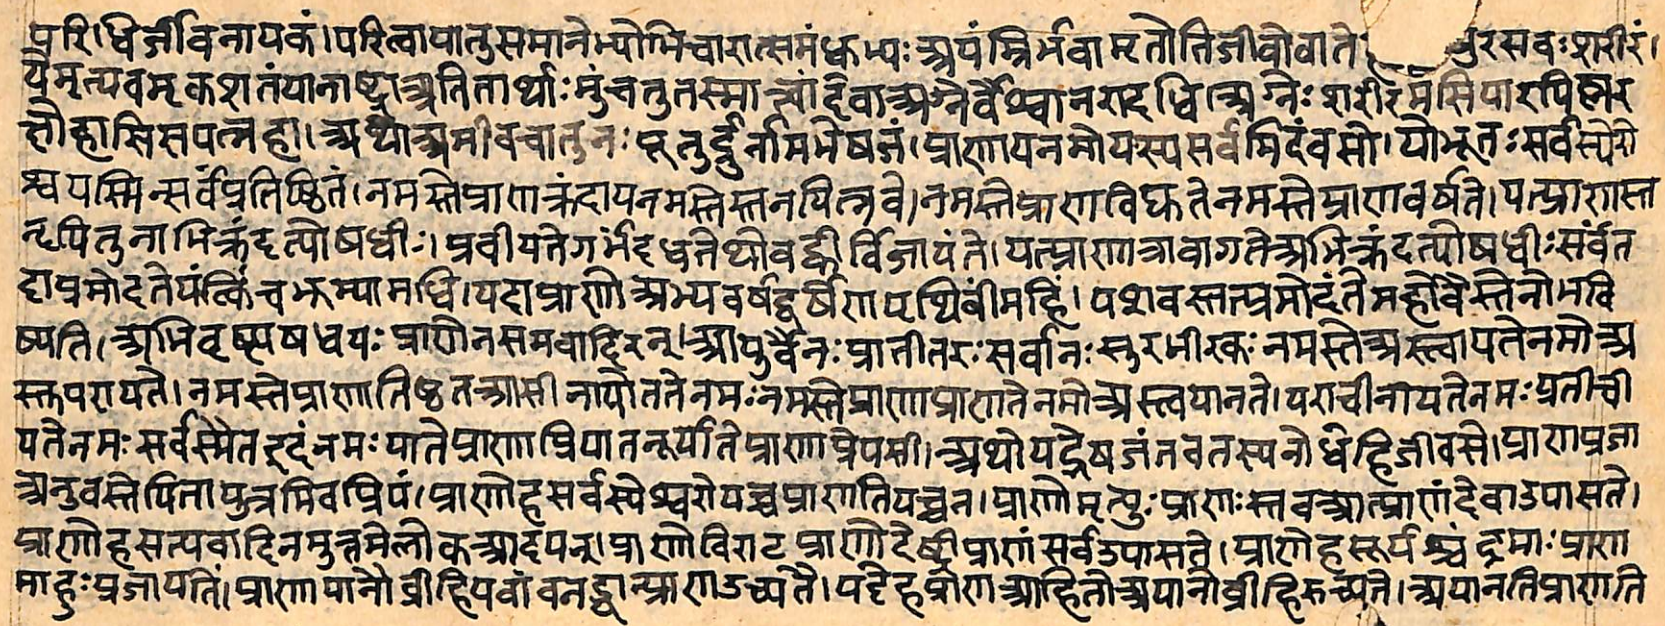 परिधिर्जीवनायकं।परित्वापातुसमानेभ्योभिचारात्समंध्कभ्यः अयंम्रिर्भवामृतोतिजीवोवाते युरसवःशरीरं।
येमृत्यवमृकशतंयानाष्ट्राअतितार्थाःमुंचतुतस्मात्त्वांदेवाअग्नेर्वैश्वानरादधि।अग्नेःशरीरमसिपारयिष्णुर
क्षोहासिसपत्नहा।अथोअमीवचातुनःपूतुर्द्रुर्नामभेषजं।प्राणायनमोयस्यसर्वमिदंवसो।योभूतःसर्वस्येरो
श्वयस्मिन्सर्वंप्रतिष्ठितं।नमस्तेप्राणक्रंदायनमस्तेस्तनयित्नवे।नमस्तेप्राणविद्युतेनमस्तेप्राणवर्षते।यत्प्राणस्त
न्दयित्नुनाभिक्रंदत्योषधीः।प्रवीयतेगर्भंदधतेथोवह्वीर्विजायंते।यत्प्राणऋतावागतेअभिक्रंदत्योषधीःसर्वंत
दाप्रमोदतेयंत्किंचभूम्यामधि।यदाप्राणोअभ्यवर्षद्वर्षेणपृथिवींमहिं।पशवस्तत्प्रमोदंतेमहोवैस्तेनोभवि
ष्यति।अभिवृष्टाषधयःप्राणेनसमवादिरन्।आयुर्वैनःप्रातीतरःसर्वानःसुरभीरकःनमस्तेअस्त्वायतेनमोअ
स्तपरायते।नमस्तेप्राणतिष्ठतआसीनायोततेनमःनमस्तेप्राणप्राणतेनमोअस्त्वपानते।पराचीनायतेनमःप्रतीची
यतेनमःसर्वस्मैतइदंनमःयातेप्राणप्रियातनूर्योतेप्राणप्रेयसी।अथोयद्भेषजंतवतस्यनोधेहिजीवसे।प्राणप्रजा
अनुवस्तेपितापुत्रमिवप्रियं।प्राणोहसर्वस्येश्वरोयच्चप्राणतियच्चन।प्राणोमृत्युःप्राणःस्तक्आत्प्राणंदेवाउपासते।
प्राणोहसत्यवादिनमुत्तमेलोकआदधन्।प्राणोविराटप्राणोदेष्ट्रीप्राणंसर्वउपासते।प्राणोहसूर्यश्चंद्रमाःप्राण
माहुःप्रजापतिं।प्राणापानौव्रीहियवांवनड्वान्प्राणउच्यते।यवेहप्राणआहितोअपानोव्रीहिरुच्यते।अपानतिप्राणति